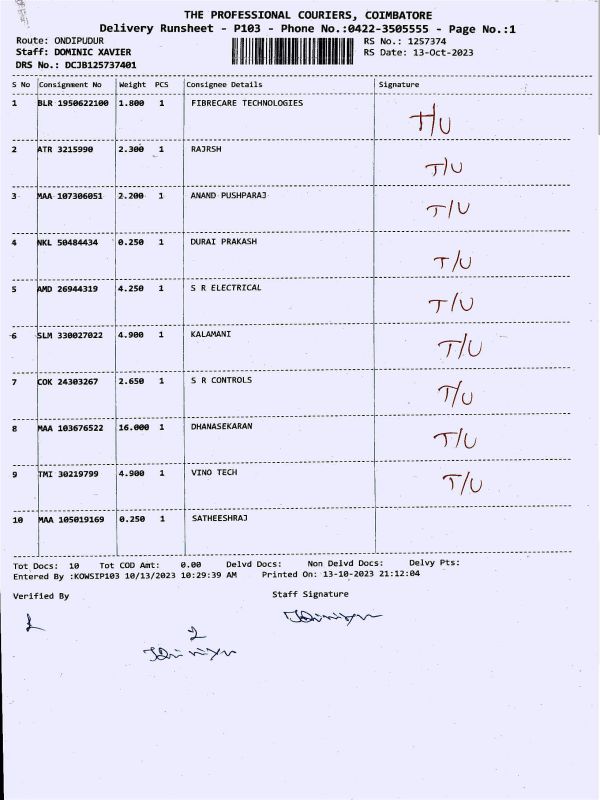 THE PROFESSIONAL COURIERS, COIMBATORE
Delivery Runsheet - P103 - Phone No.:0422-3505555 - Page No.:1
Route: ONDIPUDUR RS No.: 1257374
Staff: DOMINIC XAVIER RS Date: 13-Oct-2023
DRS No.: DCJB125737401
S No Consignment No Weight PCS Consignee Details Signature
1 BLR 1950622100 1.800 1 FIBRECARE TECHNOLOGIES T/U
2 ATR 3215990 2.300 1 RAJRSH T/U
3 MAA 107306051 2.200 1 ANAND PUSHPARAJ T/U
4 NKL 50484434 0.250 1 DURAI PRAKASH T/U
5 AMD 26944319 4.250 1 S R ELECTRICAL T/U
6 SLM 330027022 4.900 1 KALAMANI T/U
7 COK 24303267 2.650 1 S R CONTROLS T/U
8 MAA 103676522 16.000 1 DHANASEKARAN T/U
9 TMI 30219799 4.900 1 VINO TECH T/U
10 MAA 105019169 0.250 1 SATHEESHRAJ
Tot Docs: 10 Tot COD Amt: 0.00 Delvd Docs: Non Delvd Docs: Delvy Pts:
Entered By :KOWSIP103 10/13/2023 10:29:39 AM Printed On: 13-10-2023 21:12:04
Verified By Staff Signature
2